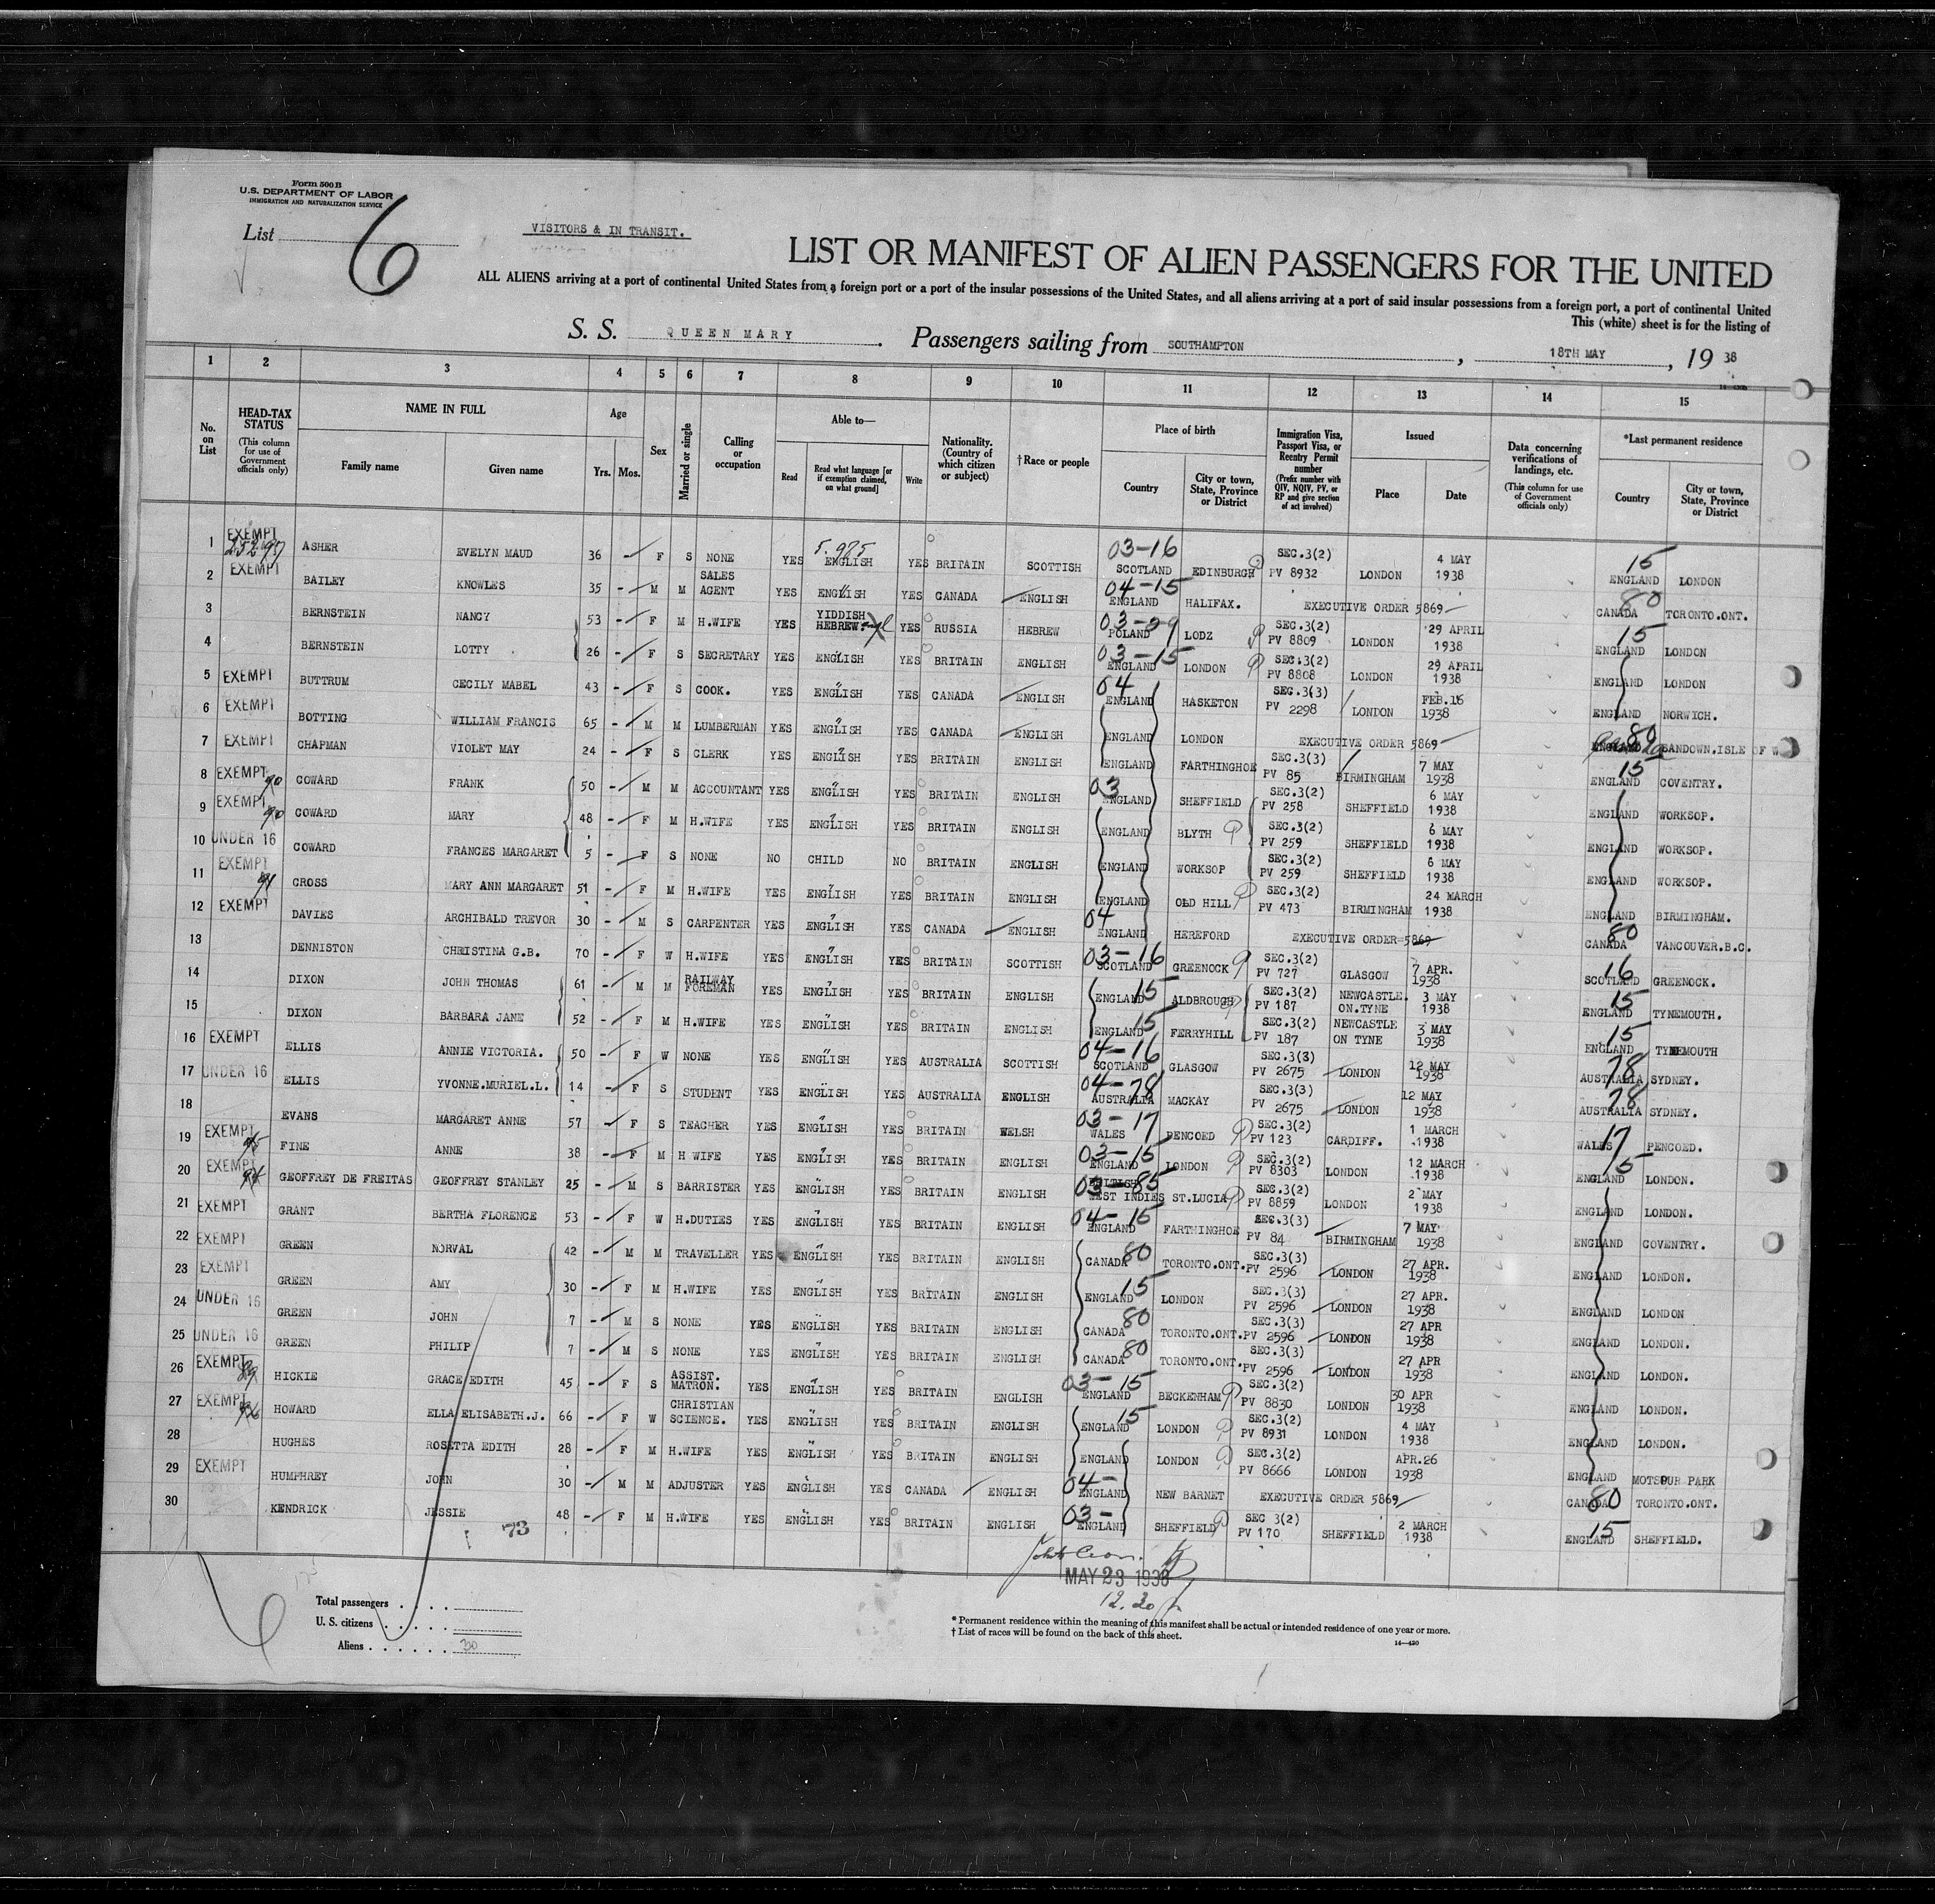 Form 500 B
U.S. DEPARTMENT OF LABOR
IMMIGRATION AND NATURALIZATION SERVICE
List 6
VISITORS & IN TRANSIT.
LIST OR MANIFEST OF ALIEN PASSENGERS FOR THE UNITED
ALL ALIENS arriving at a port of continental United States from a foreign port or a port of the insular possessions of the United States, and all aliens arriving at a port of said insular possessions from a foreign port, a port of continental United
This (white) sheet is for the listing of
S. S. QUEEN MARY. Passengers sailing from SOUTHAMPTON, 18TH MAY, 19 38
1 2 3 4 5 6 7 8 9 10 11 12 13 14 15
No. on List
HEAD-TAX STATUS (This column for use of Government officials only)
NAME IN FULL
Family name
Given name
Age
Yrs. Mos.
Sex
Married or single
Calling or occupation
Able to—
Read
Read what language [or if exemption claimed, on what ground]
Write
Nationality. (Country of which citizen or subject)
†Race or people
Place of birth
Country
City or town, State, Province or District
Immigration Visa, Passport Visa, or Reentry Permit number (Prefix number with QIV, NQIV, PV, or RP and give section of act involved)
Issued
Place
Date
Data concerning verifications of landings, etc. (This column for use of Government officials only)
*Last permanent residence
Country
City or town, State, Province or District
1 EXEMPT ASHER EVELYN MAUD 36 - F S NONE YES ENGLISH YES BRITAIN SCOTTISH 03-16 SCOTLAND EDINBURGH SEC.3(2) PV 8932 LONDON 4 MAY 1938 15 ENGLAND LONDON
2 EXEMPT BAILEY KNOWLES 35 - M M SALES AGENT YES ENGLISH YES CANADA ENGLISH 04-15 ENGLAND HALIFAX. EXECUTIVE ORDER 5869 80 CANADA TORONTO.ONT.
3 BERNSTEIN NANCY 53 - F M H.WIFE YES YIDDISH HEBREW. YES RUSSIA HEBREW 03-29 POLAND LODZ SEC.3(2) PV 8809 LONDON 29 APRIL 1938 15 ENGLAND LONDON
4 BERNSTEIN LOTTY 26 - F S SECRETARY YES ENGLISH YES BRITAIN ENGLISH 03-15 ENGLAND LONDON SEC.3(2) PV 8808 LONDON 29 APRIL 1938 ENGLAND LONDON
5 EXEMPT BUTTRUM CECILY MABEL 43 - F S COOK. YES ENGLISH YES CANADA ENGLISH 04 ENGLAND HASKETON SEC.3(3) PV 2298 LONDON FEB.16 1938 ENGLAND NORWICH.
6 EXEMPT BOTTING WILLIAM FRANCIS 65 - M M LUMBERMAN YES ENGLISH YES CANADA ENGLISH ENGLAND LONDON EXECUTIVE ORDER 5869 80 ENGLAND SANDOWN.ISLE OF W
7 EXEMPT CHAPMAN VIOLET MAY 24 - F S CLERK YES ENGLISH YES BRITAIN ENGLISH ENGLAND FARTHINGHOE SEC.3(3) PV 85 BIRMINGHAM 7 MAY 1938 15 ENGLAND COVENTRY.
8 EXEMPT 90 COWARD FRANK 50 - M M ACCOUNTANT YES ENGLISH YES BRITAIN ENGLISH 03 ENGLAND SHEFFIELD SEC.3(2) PV 258 SHEFFIELD 6 MAY 1938 ENGLAND WORKSOP.
9 EXEMPT 90 COWARD MARY 48 - F M H.WIFE YES ENGLISH YES BRITAIN ENGLISH ENGLAND BLYTH SEC.3(2) PV 259 SHEFFIELD 6 MAY 1938 ENGLAND WORKSOP.
10 UNDER 16 COWARD FRANCES MARGARET 5 - F S NONE NO CHILD NO BRITAIN ENGLISH ENGLAND WORKSOP SEC.3(2) PV 259 SHEFFIELD 6 MAY 1938 ENGLAND WORKSOP.
11 EXEMPT CROSS MARY ANN MARGARET 51 - F M H.WIFE YES ENGLISH YES BRITAIN ENGLISH ENGLAND OLD HILL SEC.3(2) PV 473 BIRMINGHAM 24 MARCH 1938 ENGLAND BIRMINGHAM.
12 EXEMPT DAVIES ARCHIBALD TREVOR 30 - M S CARPENTER YES ENGLISH YES CANADA ENGLISH 04 ENGLAND HEREFORD EXECUTIVE ORDER 5869 80 CANADA VANCOUVER.B.C.
13 DENNISTON CHRISTINA G.B. 70 - F W H.WIFE YES ENGLISH YES BRITAIN SCOTTISH 03-16 SCOTLAND GREENOCK SEC.3(2) PV 727 GLASGOW 7 APR. 1938 16 SCOTLAND GREENOCK.
14 DIXON JOHN THOMAS 61 - M M RAILWAY FOREMAN YES ENGLISH YES BRITAIN ENGLISH ENGLAND 15 ALDBROUGH SEC.3(2) PV 187 NEWCASTLE. ON.TYNE 3 MAY 1938 15 ENGLAND TYNEMOUTH.
15 DIXON BARBARA JANE 52 - F M H.WIFE YES ENGLISH YES BRITAIN ENGLISH ENGLAND 15 FERRYHILL SEC.3(2) PV 187 NEWCASTLE ON TYNE 3 MAY 1938 15 ENGLAND TYNEMOUTH
16 EXEMPT ELLIS ANNIE VICTORIA. 50 - F W NONE YES ENGLISH YES AUSTRALIA SCOTTISH 04-16 SCOTLAND GLASGOW SEC.3(3) PV 2675 LONDON 12 MAY 1938 78 AUSTRALIA SYDNEY.
17 UNDER 16 ELLIS YVONNE.MURIEL.L. 14 - F S STUDENT YES ENGLISH YES AUSTRALIA ENGLISH 04-78 AUSTRALIA MACKAY SEC.3(3) PV 2675 LONDON 12 MAY 1938 78 AUSTRALIA SYDNEY.
18 EVANS MARGARET ANNE 57 - F S TEACHER YES ENGLISH YES BRITAIN WELSH 03-17 WALES PENCOED SEC.3(2) PV 123 CARDIFF. 1 MARCH 1938 17 WALES PENCOED.
19 EXEMPT FINE ANNE 38 - F M H WIFE YES ENGLISH YES BRITAIN ENGLISH 03-15 ENGLAND LONDON SEC.3(2) PV 8303 LONDON 12 MARCH 1938 15 ENGLAND LONDON.
20 EXEMPT GEOFFREY DE FREITAS GEOFFREY STANLEY 25 - M S BARRISTER YES ENGLISH YES BRITAIN ENGLISH 03-85 BRITISH WEST INDIES ST.LUCIA SEC.3(2) PV 8859 LONDON 2 MAY 1938 ENGLAND LONDON.
21 EXEMPT GRANT BERTHA FLORENCE 53 - F W H.DUTIES YES ENGLISH YES BRITAIN ENGLISH 04-15 ENGLAND FARTHINGHOE SEC.3(3) PV 84 BIRMINGHAM 7 MAY 1938 ENGLAND COVENTRY.
22 EXEMPT GREEN NORVAL 42 - M M TRAVELLER YES ENGLISH YES BRITAIN ENGLISH CANADA 80 TORONTO.ONT. SEC.3(3) PV 2596 LONDON 27 APR. 1938 ENGLAND LONDON.
23 EXEMPT GREEN AMY 30 - F M H.WIFE YES ENGLISH YES BRITAIN ENGLISH ENGLAND 15 LONDON SEC.3(3) PV 2596 LONDON 27 APR. 1938 ENGLAND LONDON
24 UNDER 16 GREEN JOHN 7 - M S NONE YES ENGLISH YES BRITAIN ENGLISH CANADA 80 TORONTO.ONT. SEC.3(3) PV 2596 LONDON 27 APR 1938 ENGLAND LONDON.
25 UNDER 16 GREEN PHILIP 7 - M S NONE YES ENGLISH YES BRITAIN ENGLISH CANADA 80 TORONTO.ONT. SEC.3(3) PV 2596 LONDON 27 APR 1938 ENGLAND LONDON.
26 EXEMPT HICKIE GRACE EDITH 45 - F S ASSIST. MATRON. YES ENGLISH YES BRITAIN ENGLISH 03-15 ENGLAND BECKENHAM SEC.3(2) PV 8830 LONDON 30 APR 1938 ENGLAND LONDON.
27 EXEMPT HOWARD ELLA ELISABETH.J. 66 - F W CHRISTIAN SCIENCE. YES ENGLISH YES BRITAIN ENGLISH ENGLAND 15 LONDON SEC.3(2) PV 8931 LONDON 4 MAY 1938 ENGLAND LONDON.
28 HUGHES ROSETTA EDITH 28 - F M H.WIFE YES ENGLISH YES BRITAIN ENGLISH ENGLAND LONDON SEC.3(2) PV 8666 LONDON APR.26 1938 ENGLAND MOTSPUR PARK
29 EXEMPT HUMPHREY JOHN 30 - M M ADJUSTER YES ENGLISH YES CANADA ENGLISH 04- ENGLAND NEW BARNET EXECUTIVE ORDER 5869 80 CANADA TORONTO.ONT.
30 KENDRICK JESSIE 48 - F M H.WIFE YES ENGLISH YES BRITAIN ENGLISH 03- ENGLAND SHEFFIELD SEC 3(2) PV 170 SHEFFIELD 2 MARCH 1938 15 ENGLAND SHEFFIELD.
73
MAY 23 1938
12.20
Total passengers
U.S. citizens
Aliens 30
* Permanent residence within the meaning of this manifest shall be actual or intended residence of one year or more.
† List of races will be found on the back of this sheet.
14—430